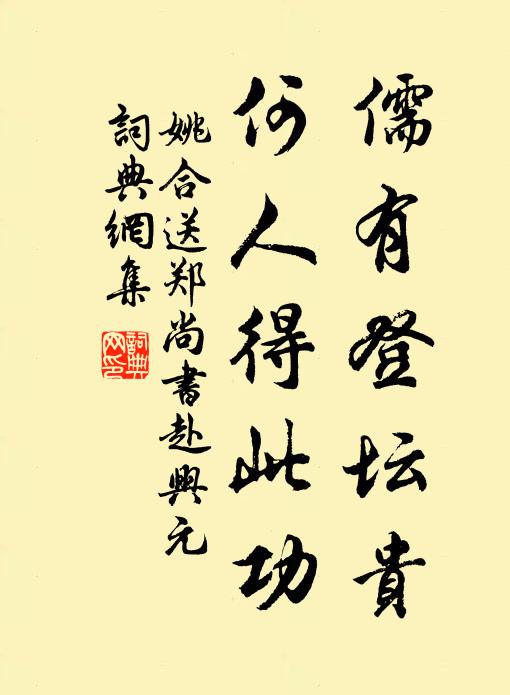 儒有登坛貴
何人得此功
姚合送郑尚書赴興元
詞典網集
詞典网印